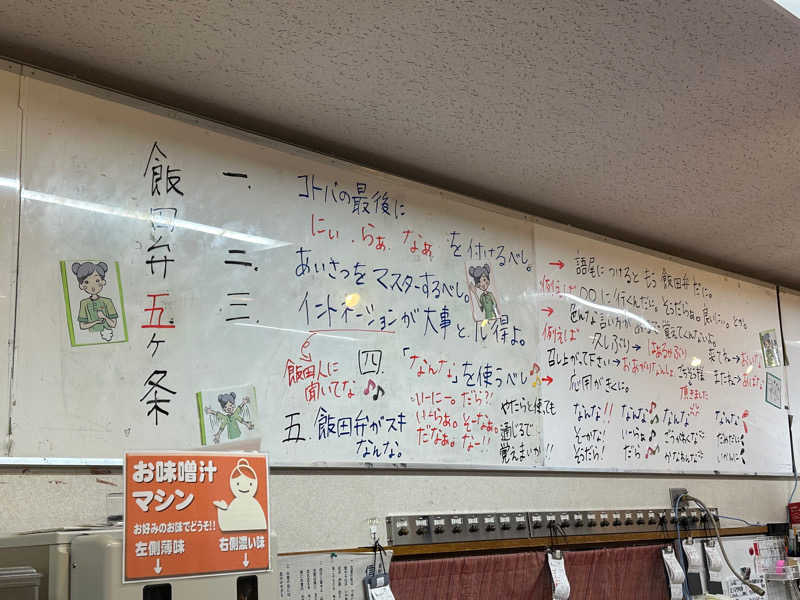 飯田弁五ヶ条
一.
コトバの最後に
にぃ.らぁ.なぁを付けるべし。
→語尾につけるともう飯田弁だに。
例えば〇〇に行くんだに。そうだらぁ。良いにぃ。とか。
二.
あいさつをマスターするべし。
→色んな言い方が覚えてくんないよ。
例えば 久しぶり→はあるかぶり
召し上がって下さい→おあがりなんしょ
ごちそう様→頂きました
またね→あばな
三.
イントネーションが大事と心得よ。
飯田人に
聞いてな
四.
「なんな」を使うべし
→応用がきくに。
いーにー。だら?!
いーらぁ。そーなぁ。
だなぁ。なー!!
やたらと使ても
通じるで
覚えまいか!!
なんな!! なんな なんな なんな
そーかな! いーらぁ
そうだら! だら いかんに
五.
飯田弁がスキ
なんな。
お味噌汁
マシン
お好みのお味でどうぞ!!
左側薄味 右側濃い味
↓ ↓